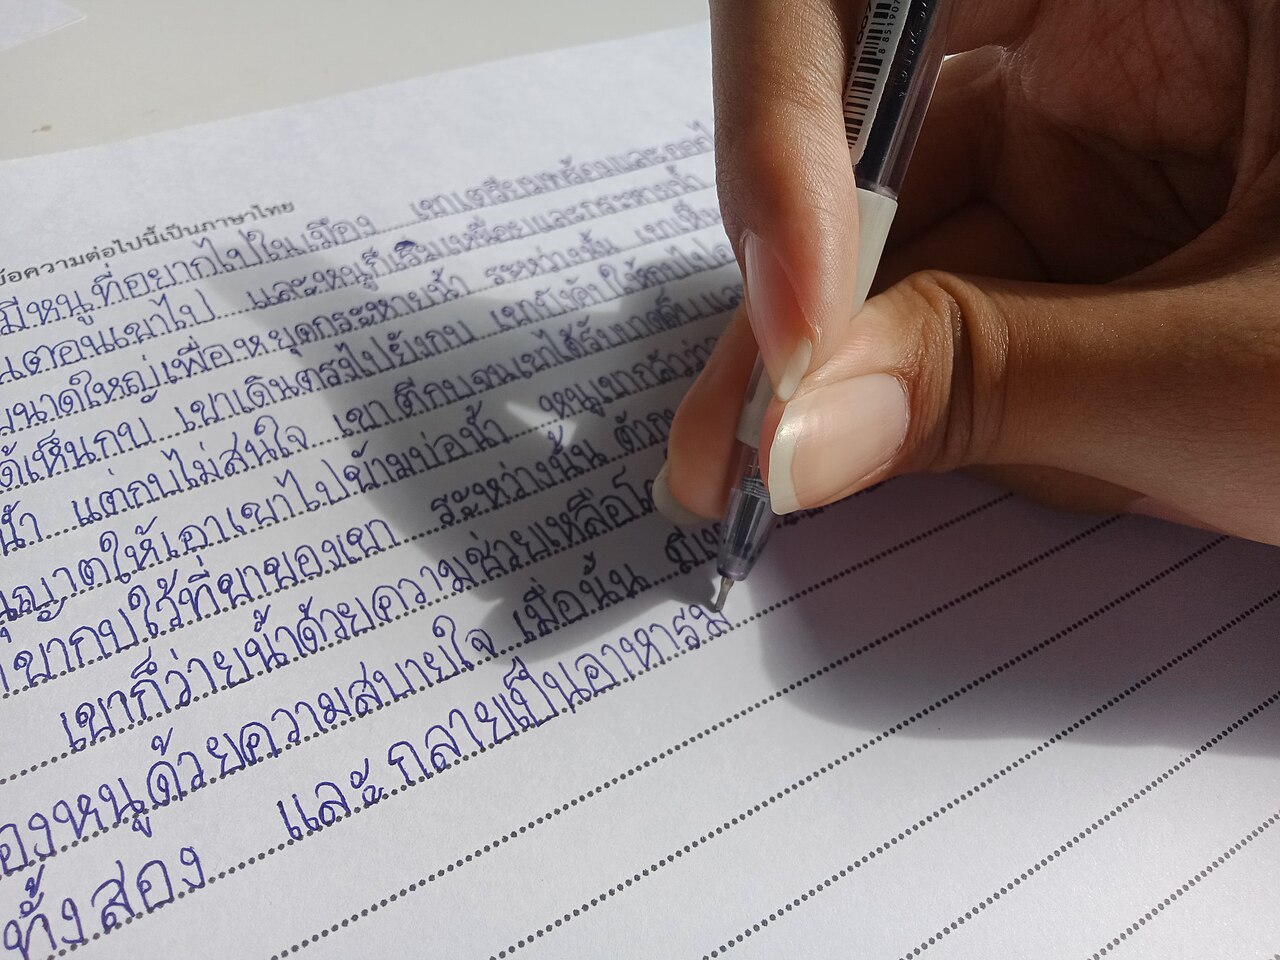 ข้อความต่อไปนี้เป็นภาษาไทย
มีหนูที่อยากไปในเมือง เขาเตรียมพร้อมและออก
ตอนเขาไป และหนูก็เริ่มเหนื่อยและกระหายน้ำ
ขนาดใหญ่เพื่อหยุดกระหายน้ำ ระหว่างนั้น เขาเห็น
ได้เห็นกบ เขาเดินตรงไปยังกบ เขาบังคับให้กบไป
น้ำ แต่กบไม่สนใจ เขาตีกบจนเขาได้รับบาดเจ็บและ
ญาตให้เอาเขาไปข้ามบ่อน้ำ หนูเขากลัวว่า
ขากบไว้ที่ขาของเขา ระหว่างนั้น
เขาก็ว่ายน้ำด้วยความช่วยเหลือ
องหนูด้วยความสบายใจ เมื่อนั้น
ทั้งสอง และกลายเป็นอาหารมื